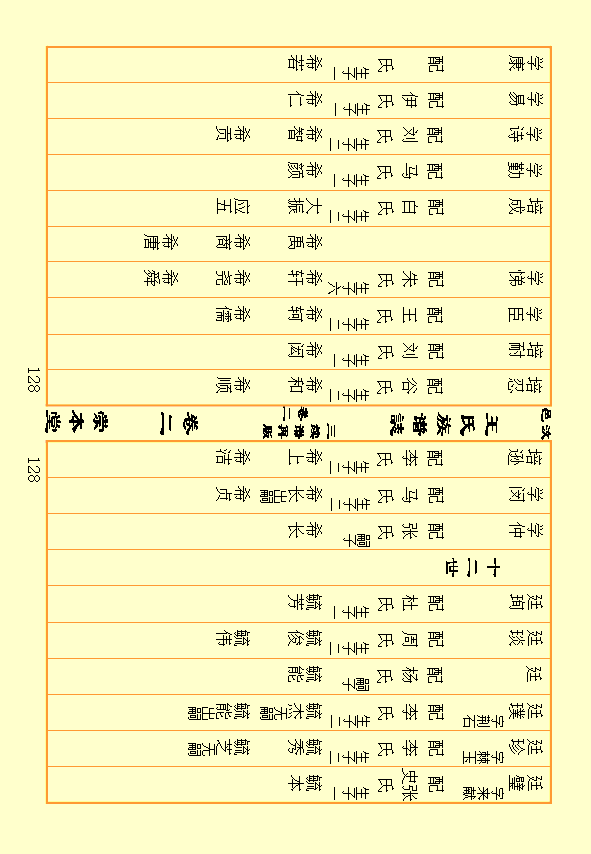 廷璧 字来献 配史张氏 生子一 毓本
廷珍 字蕴玉 配李氏 生子二 毓秀 毓芝无嗣
廷璞 字荆石 配李氏 生子二 毓杰无嗣 毓能出嗣
廷 配杨氏 嗣子 毓能
廷琰 配周氏 生子二 毓俊 毓伟
廷珣 配杜氏 生子一 毓芳
十二世
学仲 配张氏 嗣子 希长
学闵 配马氏 生子二 希长出嗣 希贞
培逊 配李氏 生子二 希上 希浩
128
汶邑 王氏族谱誌 三续谱再版卷二 卷二 崇本堂
培忍 配谷氏 生子二 希和 希顺
培尉 配刘氏 生子一 希闵
学臣 配王氏 生子二 希轲 希儒
学悌 配朱氏 生子六 希轩 希尧 希舜
希禹 希商 希唐
培成 配白氏 生子二 大振 应五
学勤 配马氏 生子一 希颜
学诗 配刘氏 生子二 希智 希贡
学易 配伊氏 生子一 希仁
学康 配 氏 生子一 希若
128